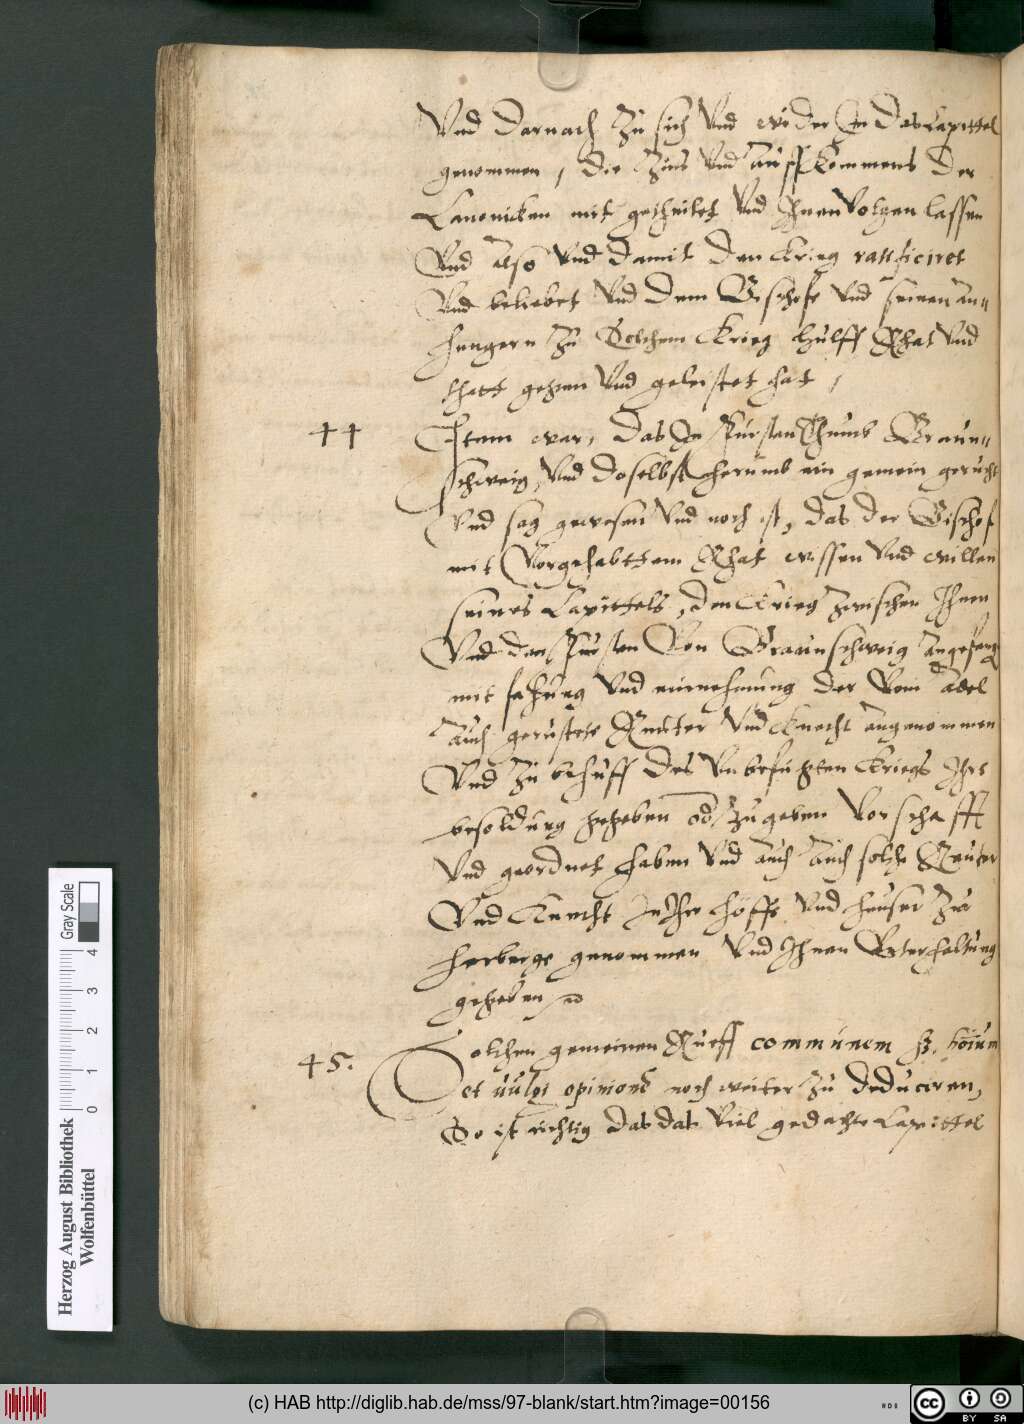 Vnd darnach zu sich Vnd wider In das Capittel
genommen, die Zins Vnd Auffkommens der
Canonicken mit getheilet Vnd Ihnen Volgen lassen
Vnd also Vnd damit den Krieg ratificiret
Vnd beliebet Vnd dem Bischofe Vnd seinen An„
hengern zu Solchem Krieg hulff Rhat Vnd
thatt geben Vnd geleistet hat,
44 Item war, das In Furstenthumb Braun„
schweig, Vnd doselbst herumb ein gemein gerucht
Vnd sag gewesen Vnd noch ist, das der Bischof
mit Vorgehabttem Rhat wissen Vnd willen
seines Capittels, den Krieg zwischen Ihnen
Vnd den Fursten Von Braunschweig angefang
mit Vnd einnehmung der Vom Adel
Auch gerustete Reuter Vnd Knecht angenommen
Vnd zu behuff des Vnbefugten Kriegs Ihre
besoldung gegeben od zugeben Vorschafft
Vnd geordnet haben Vnd auch Auch solche Reuter
Vnd Knecht In Ihre höffe Vnd heuser zur
herberge genommen Vnd Ihnen Vnterhaltung
gegeben
45. Solchen gemeinen Rueff communem hoium
et uulgi opinione noch weiter zu deduciren,
So ist richtig das das Viel gedachte Capittel
Herzog August Bibliothek
Wolfenbüttel
Gray Scale
0 1 2 3 4
(c) HAB http://diglib.hab.de/mss/97-blank/start.htm?image=00156
cc BY SA